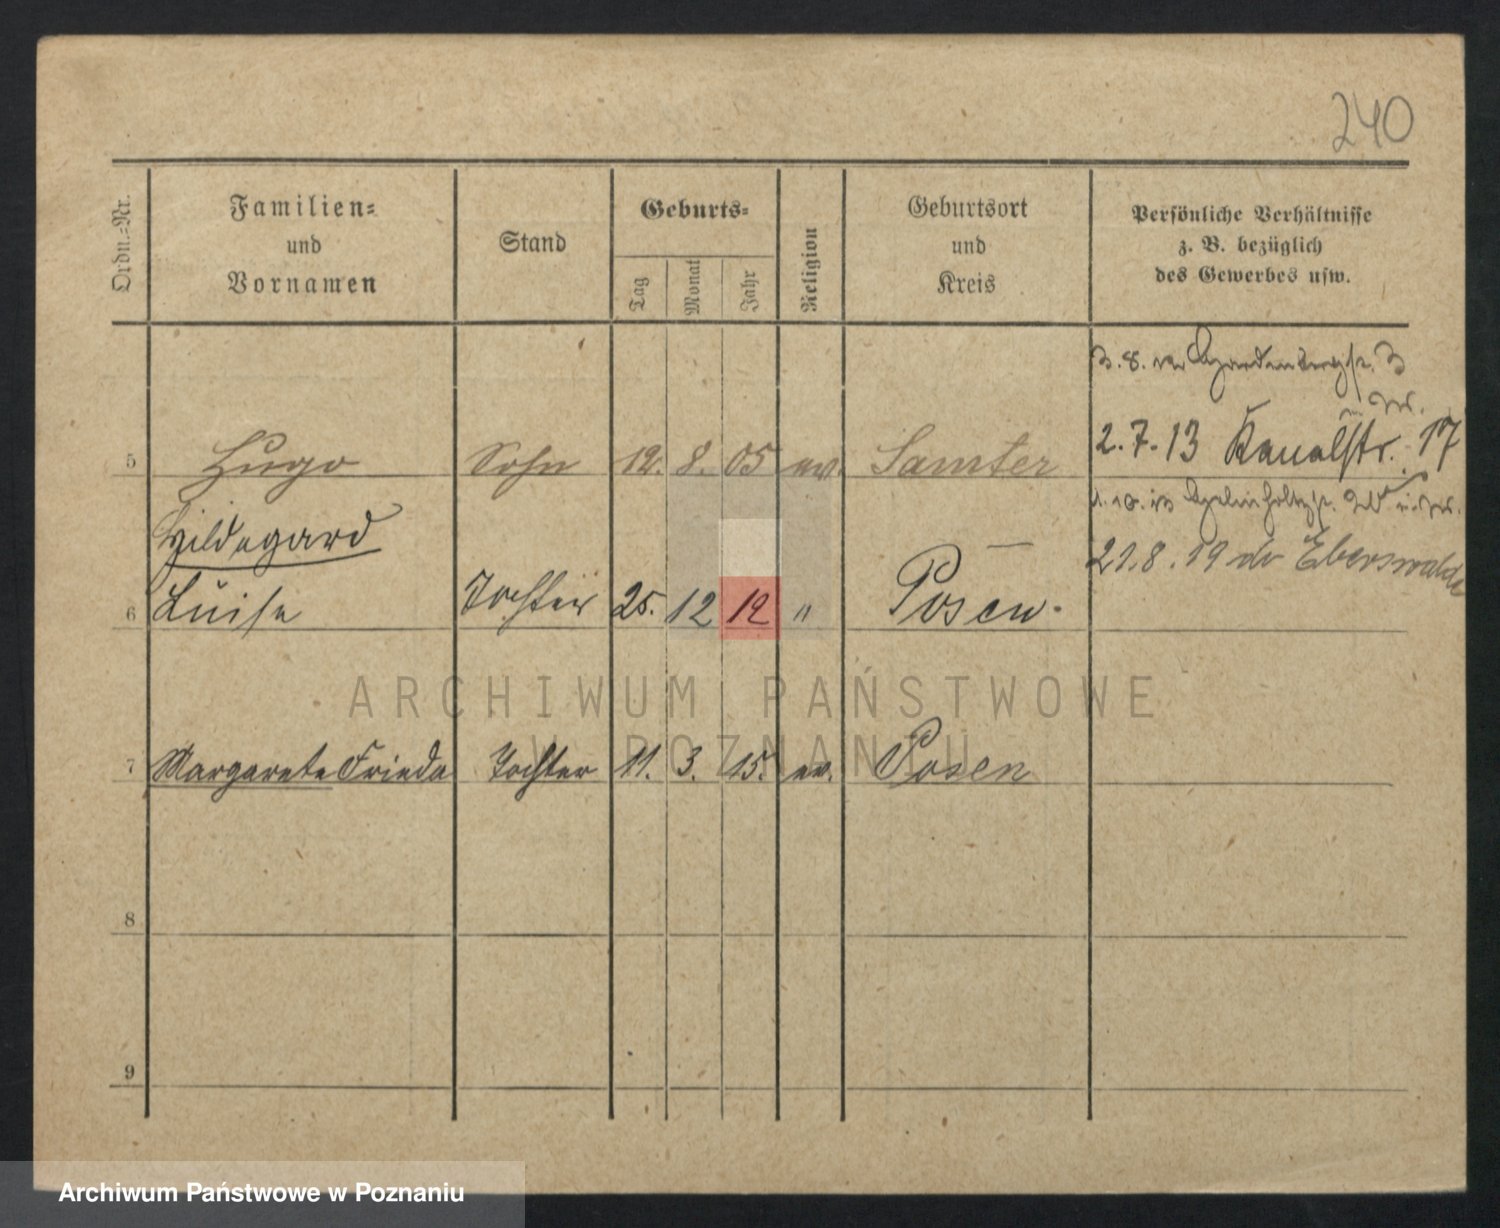 240
Ordn.-Nr.
Familien-
und
Vornamen
Stand
Geburts-
Tag
Monat
Jahr
Religion
Geburtsort
und
Kreis
Persönliche Verhältnisse
z. B. bezüglich
des Gewerbes usw.
5 Hugo Sohn 12. 8. 05 ev. Samter
2.7.13 Kanalstr. 17
Hildegard
21.8.19 Eberswalde
6 Luise Tochter 25. 12 12 " Posen.
ARCHIWUM PAŃSTWOWE
W POZNANIU
7 Margarete Frieda Tochter 11. 3. 15. ev. Posen
8
9
Archiwum Państwowe w Poznaniu